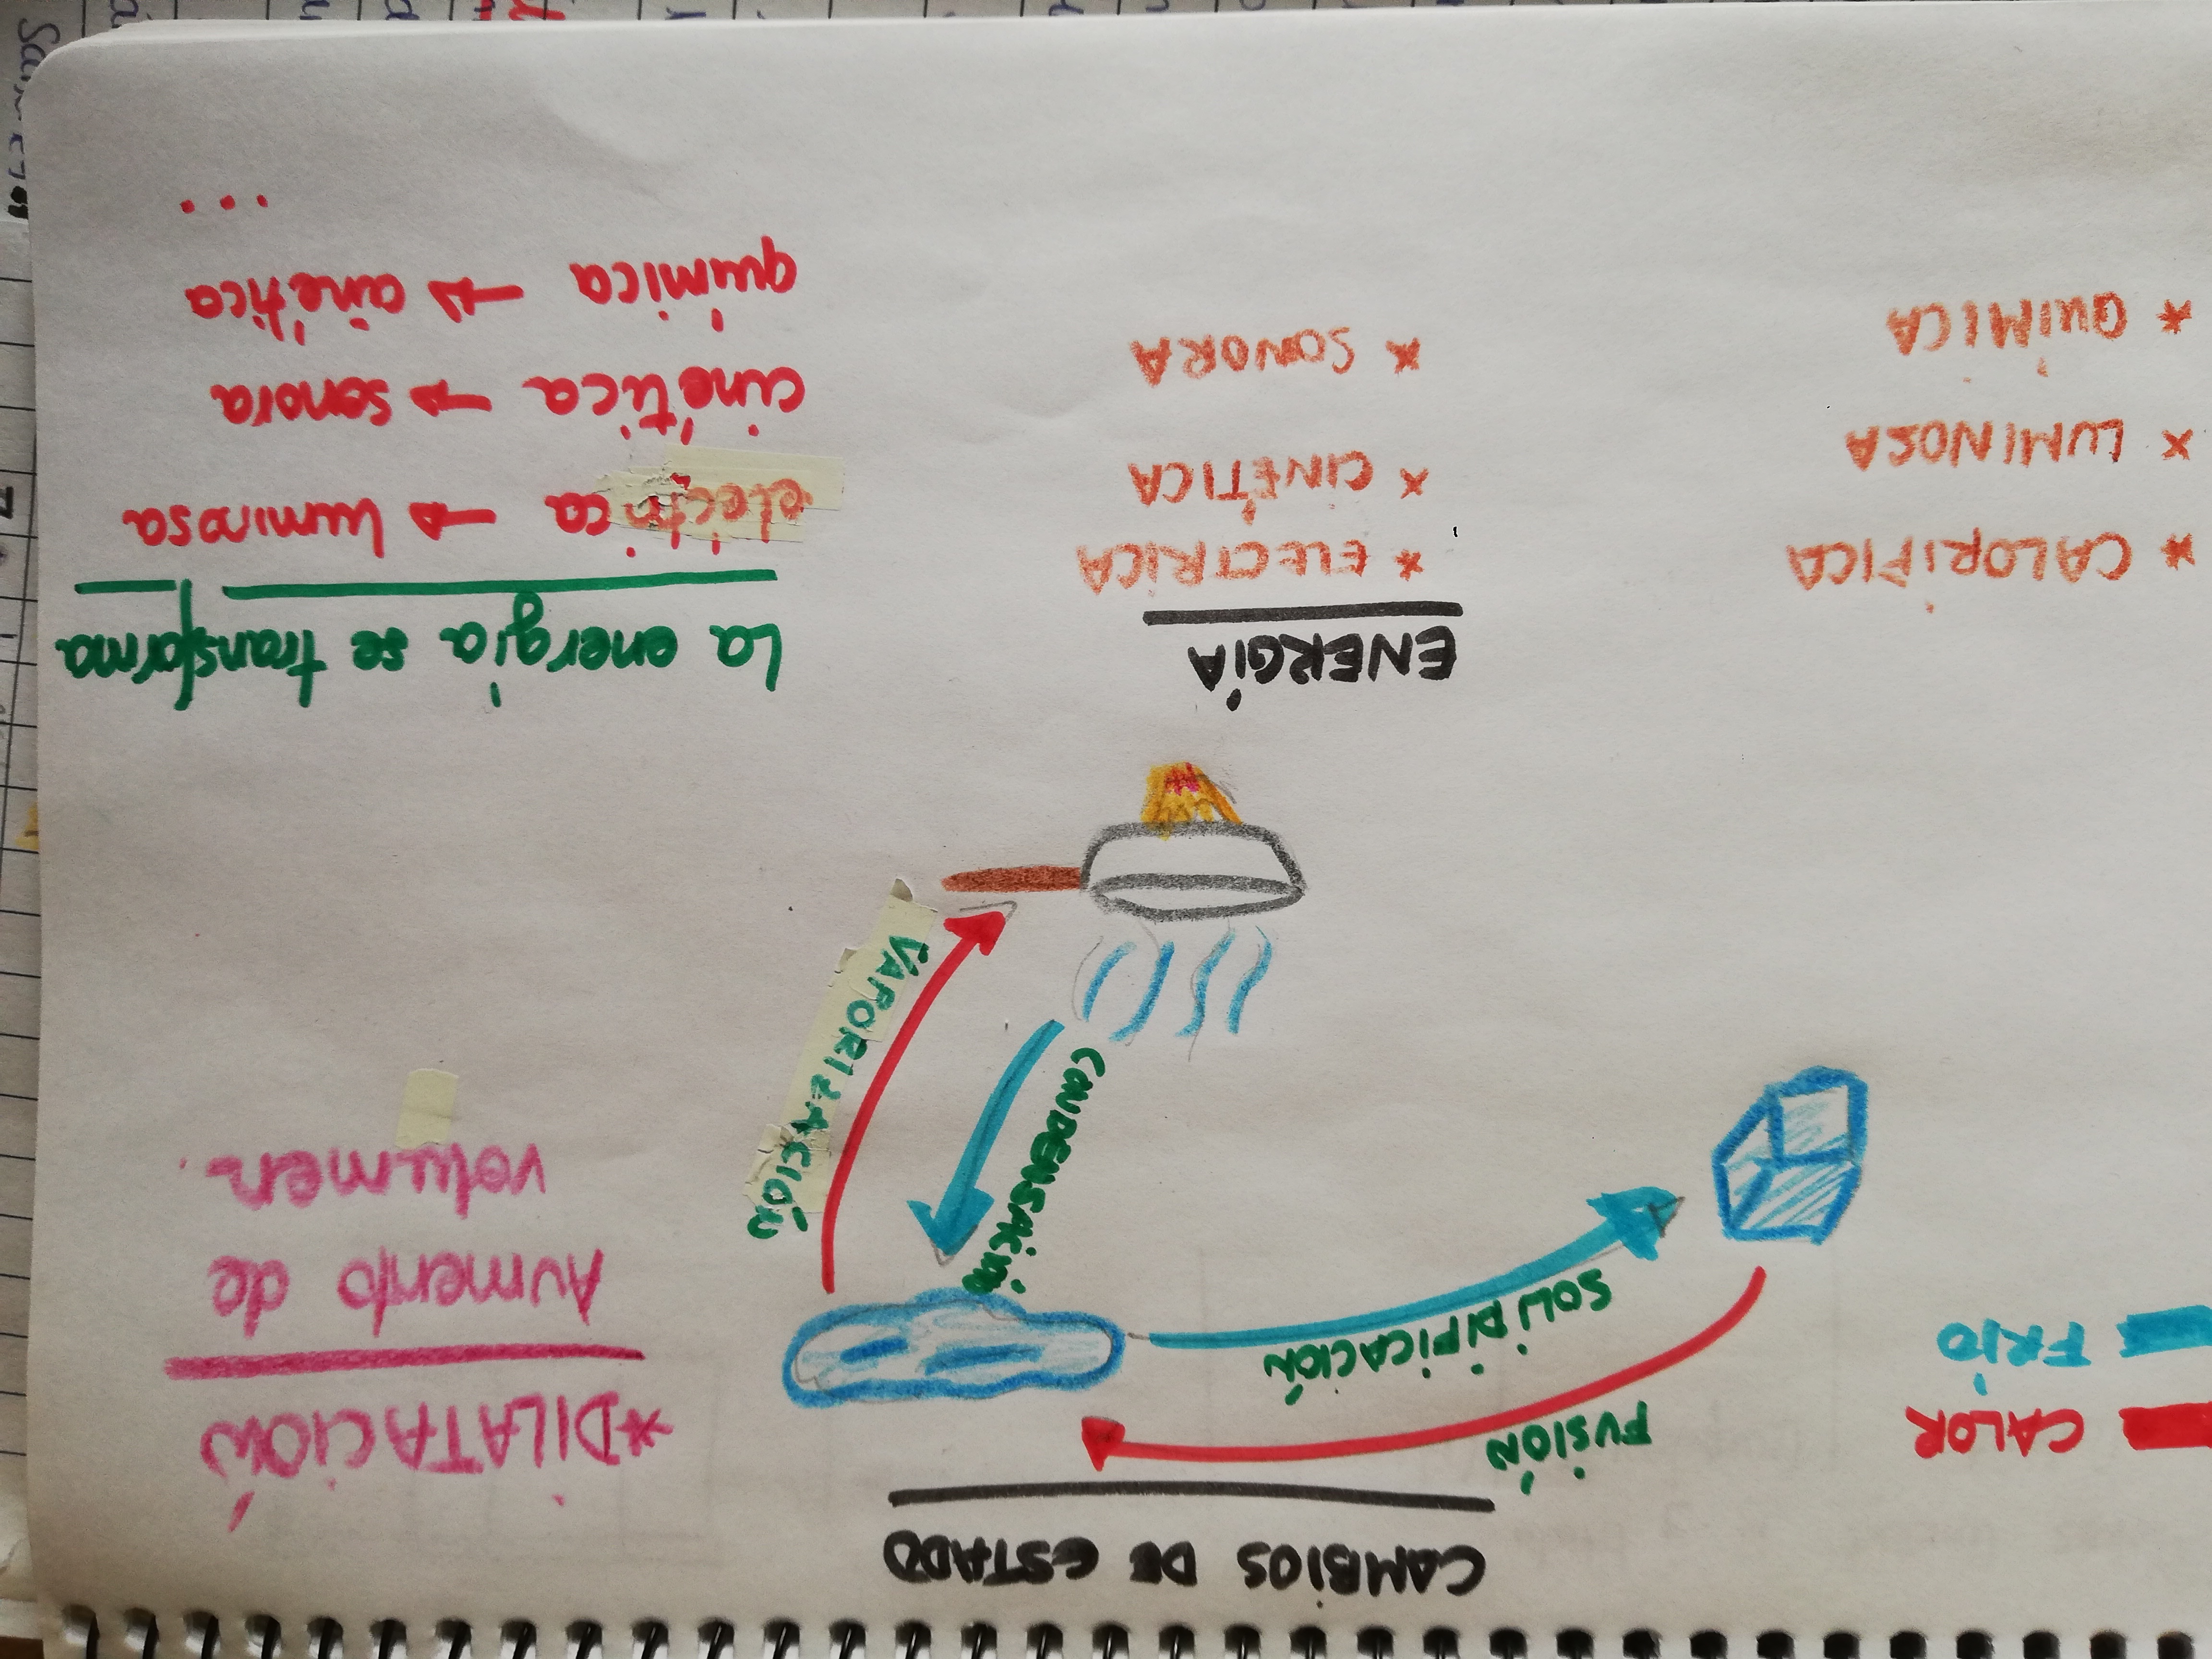 CAMBIOS DE ESTADO
CALOR
FRÍO
FUSIÓN
SOLIDIFICACIÓN
CONDENSACIÓN
VAPORIZACIÓN
*DILATACIÓN
Aumento de
volumen.
ENERGÍA
* CALORÍFICA
* LUMINOSA
* QUÍMICA
* ELECTRICA
* CINÉTICA
* SONORA
La energía se transforma
eléctrica → luminosa
cinética → sonora
química → cinética
...